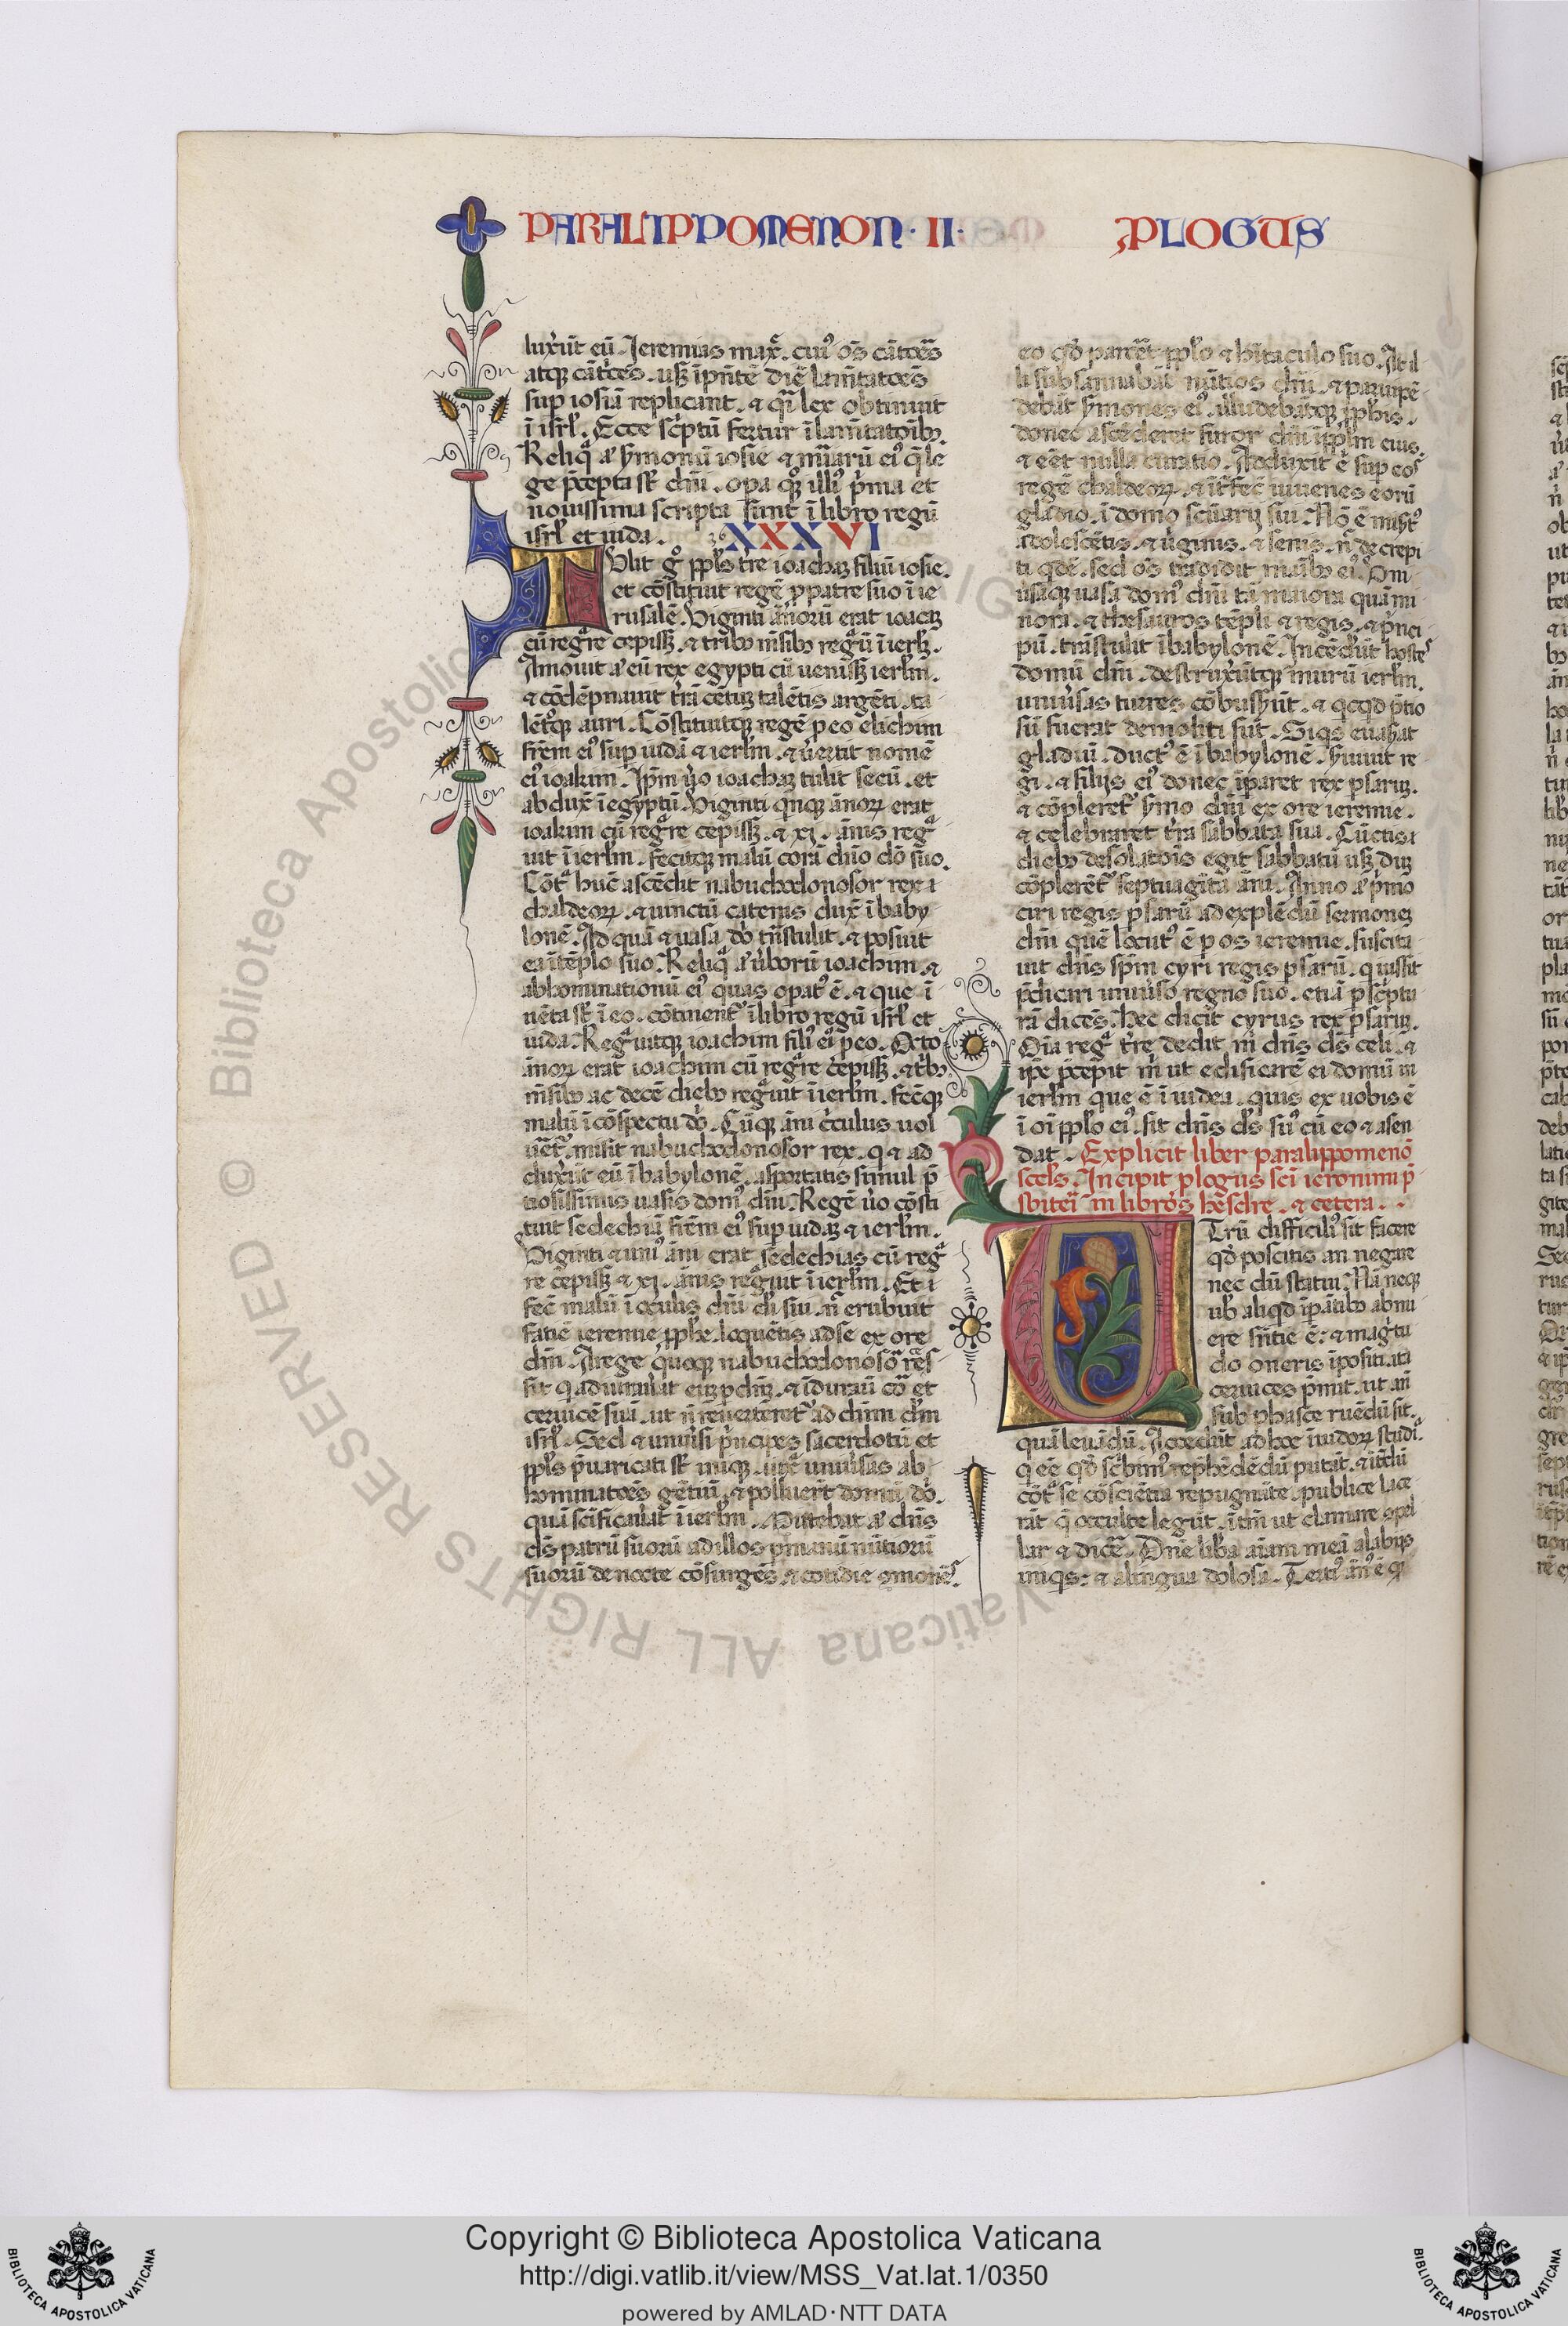 PARALIPPOMENON · II · PLOGUS
luxr̄ūt eū. Ieremias max̄. cuiꝰ oēs cātoēs
atqꝫ cātrēs. usqꝫ ī pn̄tē diē lam̄tatoēs
sup iosiā replicant. ⁊ qī lex obtinuit
ī isrl̄. Ecce sc̄ptū fertur ī lam̄tatōibꝫ.
Reliqͣ aͭ s̄monū iosie ⁊ mīaꝝ eiꝰ q̄ le
ge p̄cepta st̄ dn̄i. opa qꝫ illiꝰ p̄ma et
nouissima scripta sunt ī libro regū
isrl̄ et iuda. XXXVI
Tulit gͦ ppl̄s tr̄e ioachaz filiū iosie.
et cōstituit regē p patre suo ī ie
rusalē. Viginti ānorū erat ioacaz
cū regͣre cepissꝫ. ⁊ tribꝫ m̄sibꝫ regͣū ī ierlꝫ.
Amouit aͭ eū rex egypti cū uenissꝫ ierlm̄.
⁊ cōdēpnauit tr̄ā cētuꝫ talētis argēti. ta
lētoqꝫ auri. Cōstituitqꝫ regē p eo elichim
frēm eiꝰ sup iudā ⁊ ierlm̄. ⁊ u̓ertit nomē
eiꝰ ioakim. Ipm̄ u̓o ioachaz tulit secū. et
abdux̄ ī egyptū. Viginti qͥnqꝫ ānoꝝ erat
ioakim cū regͣre cepissꝫ. ⁊ xi. ānis regͣ
uit ī ierlm̄. fecitqꝫ malū corā dn̄o dō suo.
Cōtͣ hūc ascēdit nabuchodonosor rex
chaldeoꝝ. ⁊ uinctū catenis dux̄ ī baby
lonē. Ad quā ⁊ uasa dn̄i trāstulit. ⁊ posuit
ea ī tēplo suo. Reliqͣ aͭ u̓borū ioachim. ⁊
abhominationū eiꝰ quas opatꝰ ē. ⁊ que ī
uēta st̄ ī eo. cōtinentͬ ī libro regū isrl̄ et
iuda. Regͣuitqꝫ ioachim filiꝰ eiꝰ p eo. Octo
ānoꝝ erat ioachim cū regͣre cepissꝫ. ⁊ tͥbꝫ
m̄sibꝫ ac decē diebꝫ regͣuit ī ierlm̄. fecitqꝫ
malū ī cōspectu dn̄i. Cūqꝫ āni cͥculus uol
ue̓etͬ. misit nabuchodonosor rex. qͥ ⁊ ad
duxer̄ūt eū ī babylonē. asportatis simul p̄
tiosissimis uasis domꝰ dn̄i. Regē u̓o cōsti
tuit sedechiā frēm eiꝰ sup iudaꝫ ⁊ ierlm̄.
Viginti ⁊ uniꝰ āni erat sedechias cū regͣ
re cepissꝫ ⁊ xi. ānis regͣuit ī ierlm̄. Et
fec̄ malū ī oculis dn̄i di sui. n̄ erubuit
fatiē ieremie ppl̄e. loquētis ad se ex ore
dn̄i. A rege quoqꝫ nabuchodonosor̄ reces
sit qͥ adiurauat eū p dn̄ꝫ. ⁊ īdurauit cō et
ceruicē suā. ut n̄ reuerteretͬ ad dn̄m dm̄
isrl̄. Sed ⁊ uniu̓si pͥncipes sacerdotū et
ppl̄s p̄uaricati st̄ iniqꝫ. iuxͣ uniu̓sas ab
hominatoēs gētiū. ⁊ polluer̄t domū dn̄i.
quā scīficauat ī ierlm̄. Mittebat aͭ dn̄s
ds̄ patrū suorū ad illos p manū nūtiorū
suorū de nocte cōsurgēs. ⁊ cotidie 9monēs.
eo qd̓ parc̄et pplo ⁊ hītaculo suo. At il
li subsannabāt nūtios dn̄i. ⁊ paruipē
debāt s̄mones eiꝰ. illudebātqꝫ pphīs.
donec ascēderet furor dn̄i ī pplm eius.
⁊ eēt nulla curatio. Adduxit .e. sup eos
regē chaldeoꝝ. ⁊ īt̓fec̄ iuuenes eorū
gladio. ī domo scūarij sui. Nō ē mis̓tꝰ
adolescētis. ⁊ u̓ginis. ⁊ senis. n̄ decrepi
ti qͥdē. sed oēs tradidit manibꝫ eiꝰ. Om̄
u̓saqꝫ uasa domꝰ dn̄i tā maiora quā mi
nora. ⁊ thesauros tēpli ⁊ regis. ⁊ pͥnci
pū. trāstulit ī babylonē. Incēder̄ūt hostes
domū dn̄i. destruxer̄ūtqꝫ murū ierlm̄.
uniu̓sas turres cōbusser̄ūt. ⁊ qͥcqͥd p̄tio
sū fuerat demoliti sūt. Siqͥs euaserat
gladiū. ductꝰ ē ī babylonē. s̓uiuit re
gi. ⁊ filijs eiꝰ donec īparet rex psaꝝ.
⁊ cōpleretͬ s̄mo dn̄i ex ore ieremie.
⁊ celebraret tr̄a sabbata sua. Cūctis
diebꝫ desolatoīs egit sabbatū usqꝫ duꝫ
cōplerētͬ septuagīta āni. Anno aͭ pͥmo
ciri regis psarū ad explēdū sermonem
dn̄i quē locutꝰ ē p os ieremie. suscita
uit dn̄s spm̄ cyri regis psarū. qͥ iussit
p̄dicari uniu̓so regno suo. etiā p sc̄ptu
rā dicēs. hec dicit cyrus rex psaꝝ.
Oīa regͣ tr̄e dedit m̄ dn̄s ds̄ celi. ⁊
ip̄e p̄cepit m̄ ut edificarē ei domū in
ierlm̄ que ē ī iudea. quis ex uobis ē
ī oī pplo eiꝰ. sit dn̄s ds̄ suꝰ cū eo ⁊ asen
dat. Explicit liber paralippomenō
scd̄s. Incipit plogus scī ieronimi p̄
sbiteri in libros hesdre. ⁊ cetera.
Utrū difficiliꝰ sit facere
qd̓ poscitis an negare
nec dū statui. Nā neqꝫ
uob̄ aliqͥd īpātibꝫ abnu
ere sn̄tie ē: ⁊ magͥtu
do oneris īpositi. ita
ceruices p̄mit. ut an̄
sub phasce ruēdū sit.
quā leuādū. Accedūt ad hoc īuidoꝝ studiͣ.
qͥ oē qd̓ sc̄bimꝰ rephēdēdū putāt. ⁊ īt̓dū
cōtͣ se cōsciētia repugnāte. publice lace
rāt qͥ occulte legūt. ītm̄ ut clamare cpel
lar ⁊ dicē̄. Dn̄e lib̓a aīam meā a labijs
iniqͥs: ⁊ a lingua dolosa. Tertiꝰ ānꝰ ē qͦ
Copyright © Biblioteca Apostolica Vaticana
http://digi.vatlib.it/view/MSS_Vat.lat.1/0350
powered by AMLAD·NTT DATA
Biblioteca Apostolica Vaticana ALL RIGHTS RESERVED ©
BIBLIOTECA APOSTOLICA VATICANA
BIBLIOTECA APOSTOLICA VATICANA